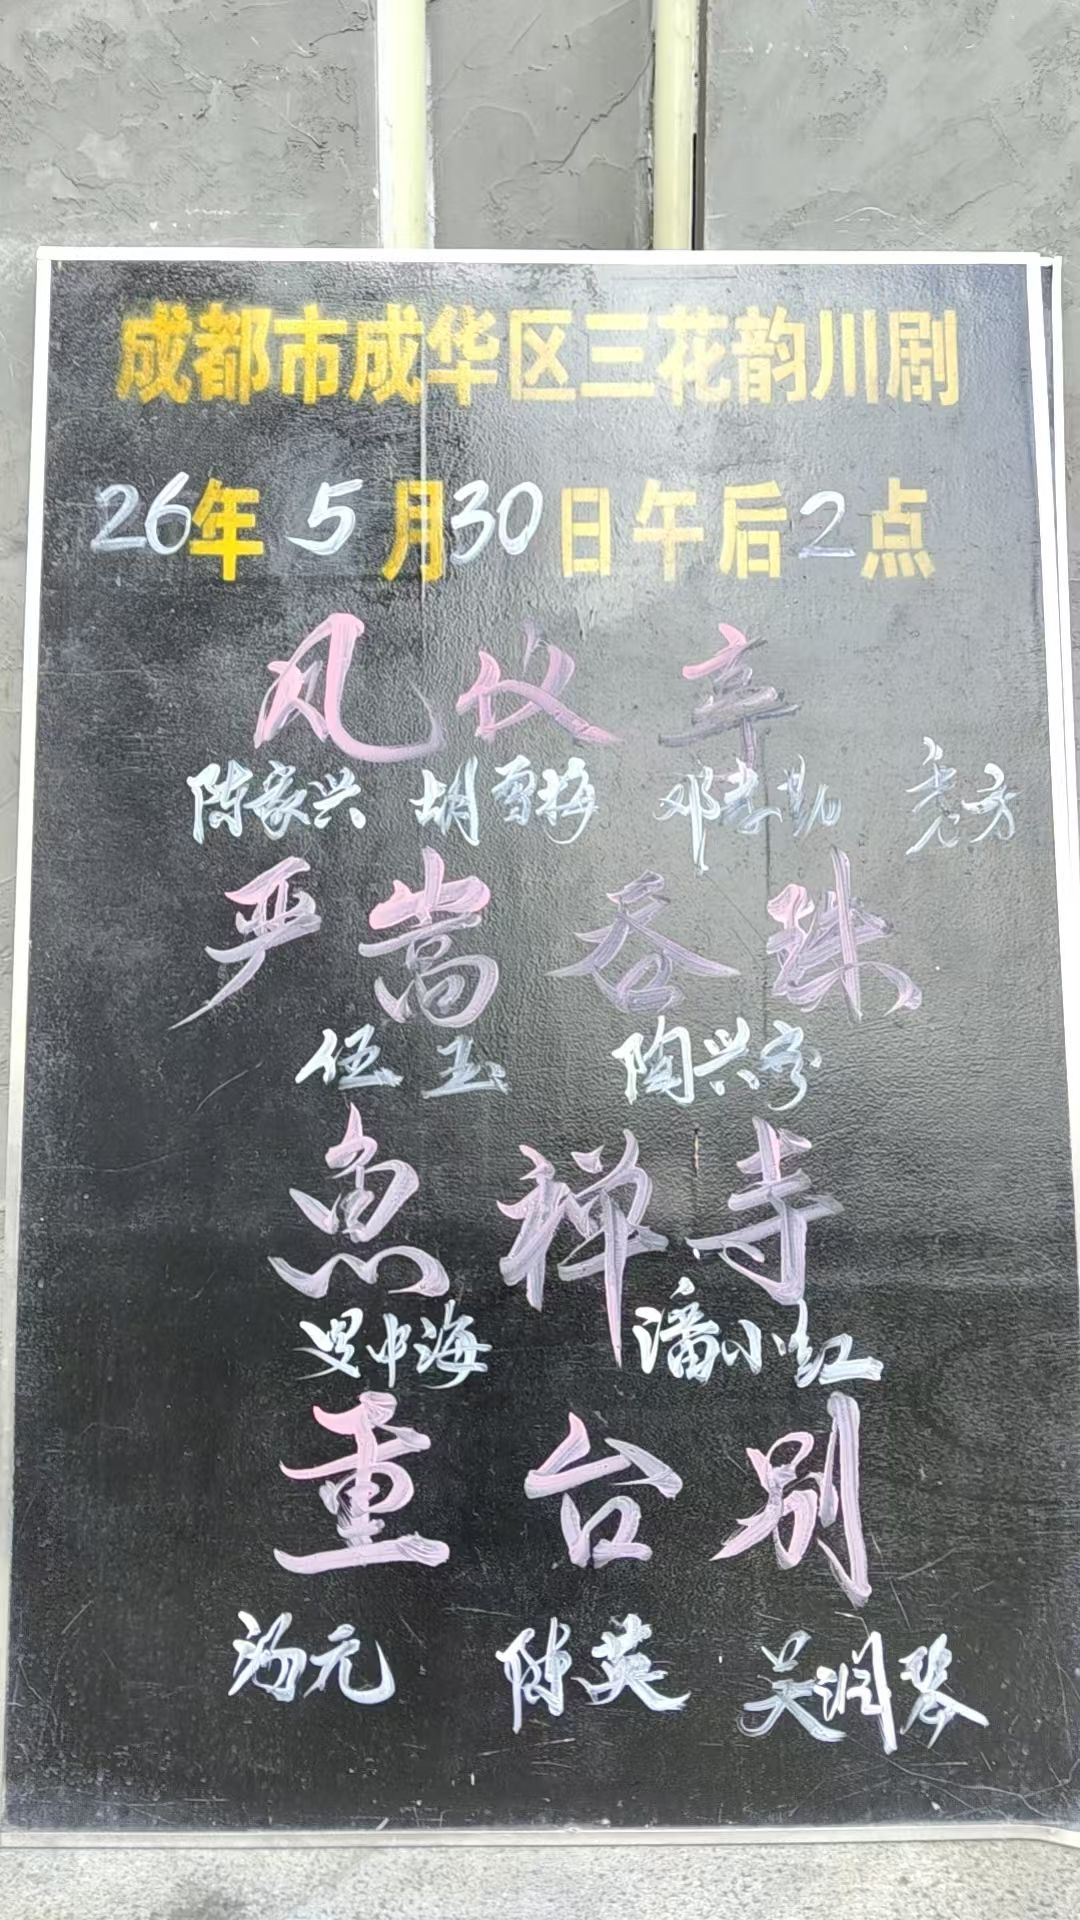 成都市成华区三花韵川剧
26年5月30日午后2点
凤仪亭
陈家兴 胡雪梅 邓孝勤
严嵩吞珠
伍玉 陶兴谷
鱼禅寺
罗中海 潘小红
重台别
汤元 陈英 吴润琴